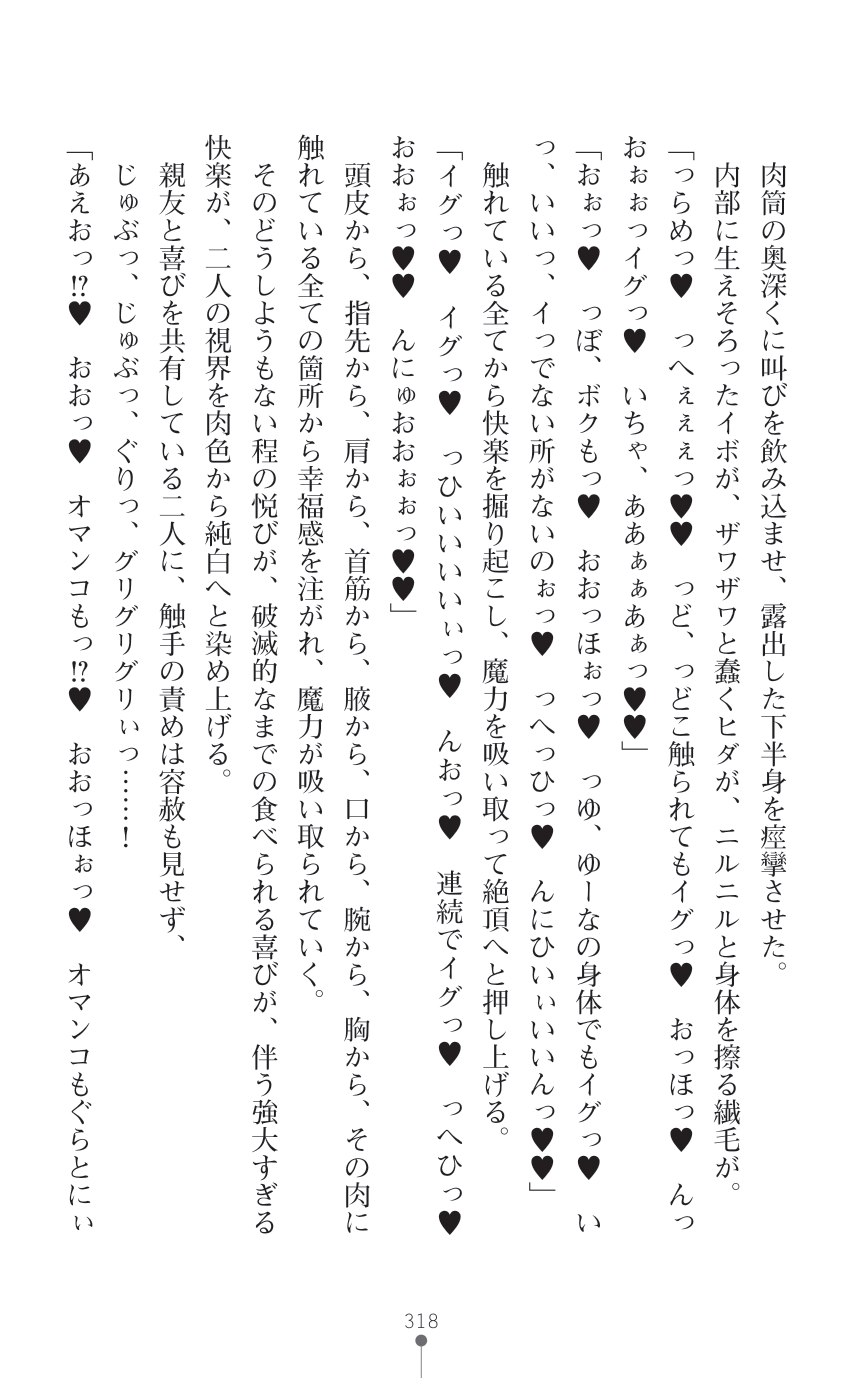 肉筒の奥深くに叫びを飲み込ませ、露出した下半身を痙攣させた。
内部に生えそろったイボが、ザワザワと蠢くヒダが、ニルニルと身体を擦る繊毛が。
「っらめっ♥　っへぇぇぇっ♥♥　っど、っどこ触られてもイグっ♥　おっほっ♥　んっ
おぉぉっイグっ♥　いちゃ、ああぁぁあぁっ♥♥」
「おぉっ♥　っぼ、ボクもっ♥　おおっほぉっ♥　っゆ、ゆーなの身体でもイグっ♥　い
っ、いいっ、イっでない所がないのぉっ♥　っへっひっ♥　んにひいぃいいんっ♥♥」
触れている全てから快楽を掘り起こし、魔力を吸い取って絶頂へと押し上げる。
「イグっ♥　イグっ♥　っひいいいいぃっ♥　んおっ♥　連続でイグっ♥　っへひっ♥
おおぉっ♥♥　んにゅおおぉぉっ♥♥」
頭皮から、指先から、肩から、首筋から、腋から、口から、腕から、胸から、その肉に
触れている全ての箇所から幸福感を注がれ、魔力が吸い取られていく。
そのどうしようもない程の悦びが、破滅的なまでの食べられる喜びが、伴う強大すぎる
快楽が、二人の視界を肉色から純白へと染め上げる。
親友と喜びを共有している二人に、触手の責めは容赦も見せず、
じゅぶっ、じゅぶっ、ぐりっ、グリグリグリぃっ……！
「あえおっ!?♥　おおっ♥　オマンコもっ!?♥　おおっほぉっ♥　オマンコもぐらとにぃ
318